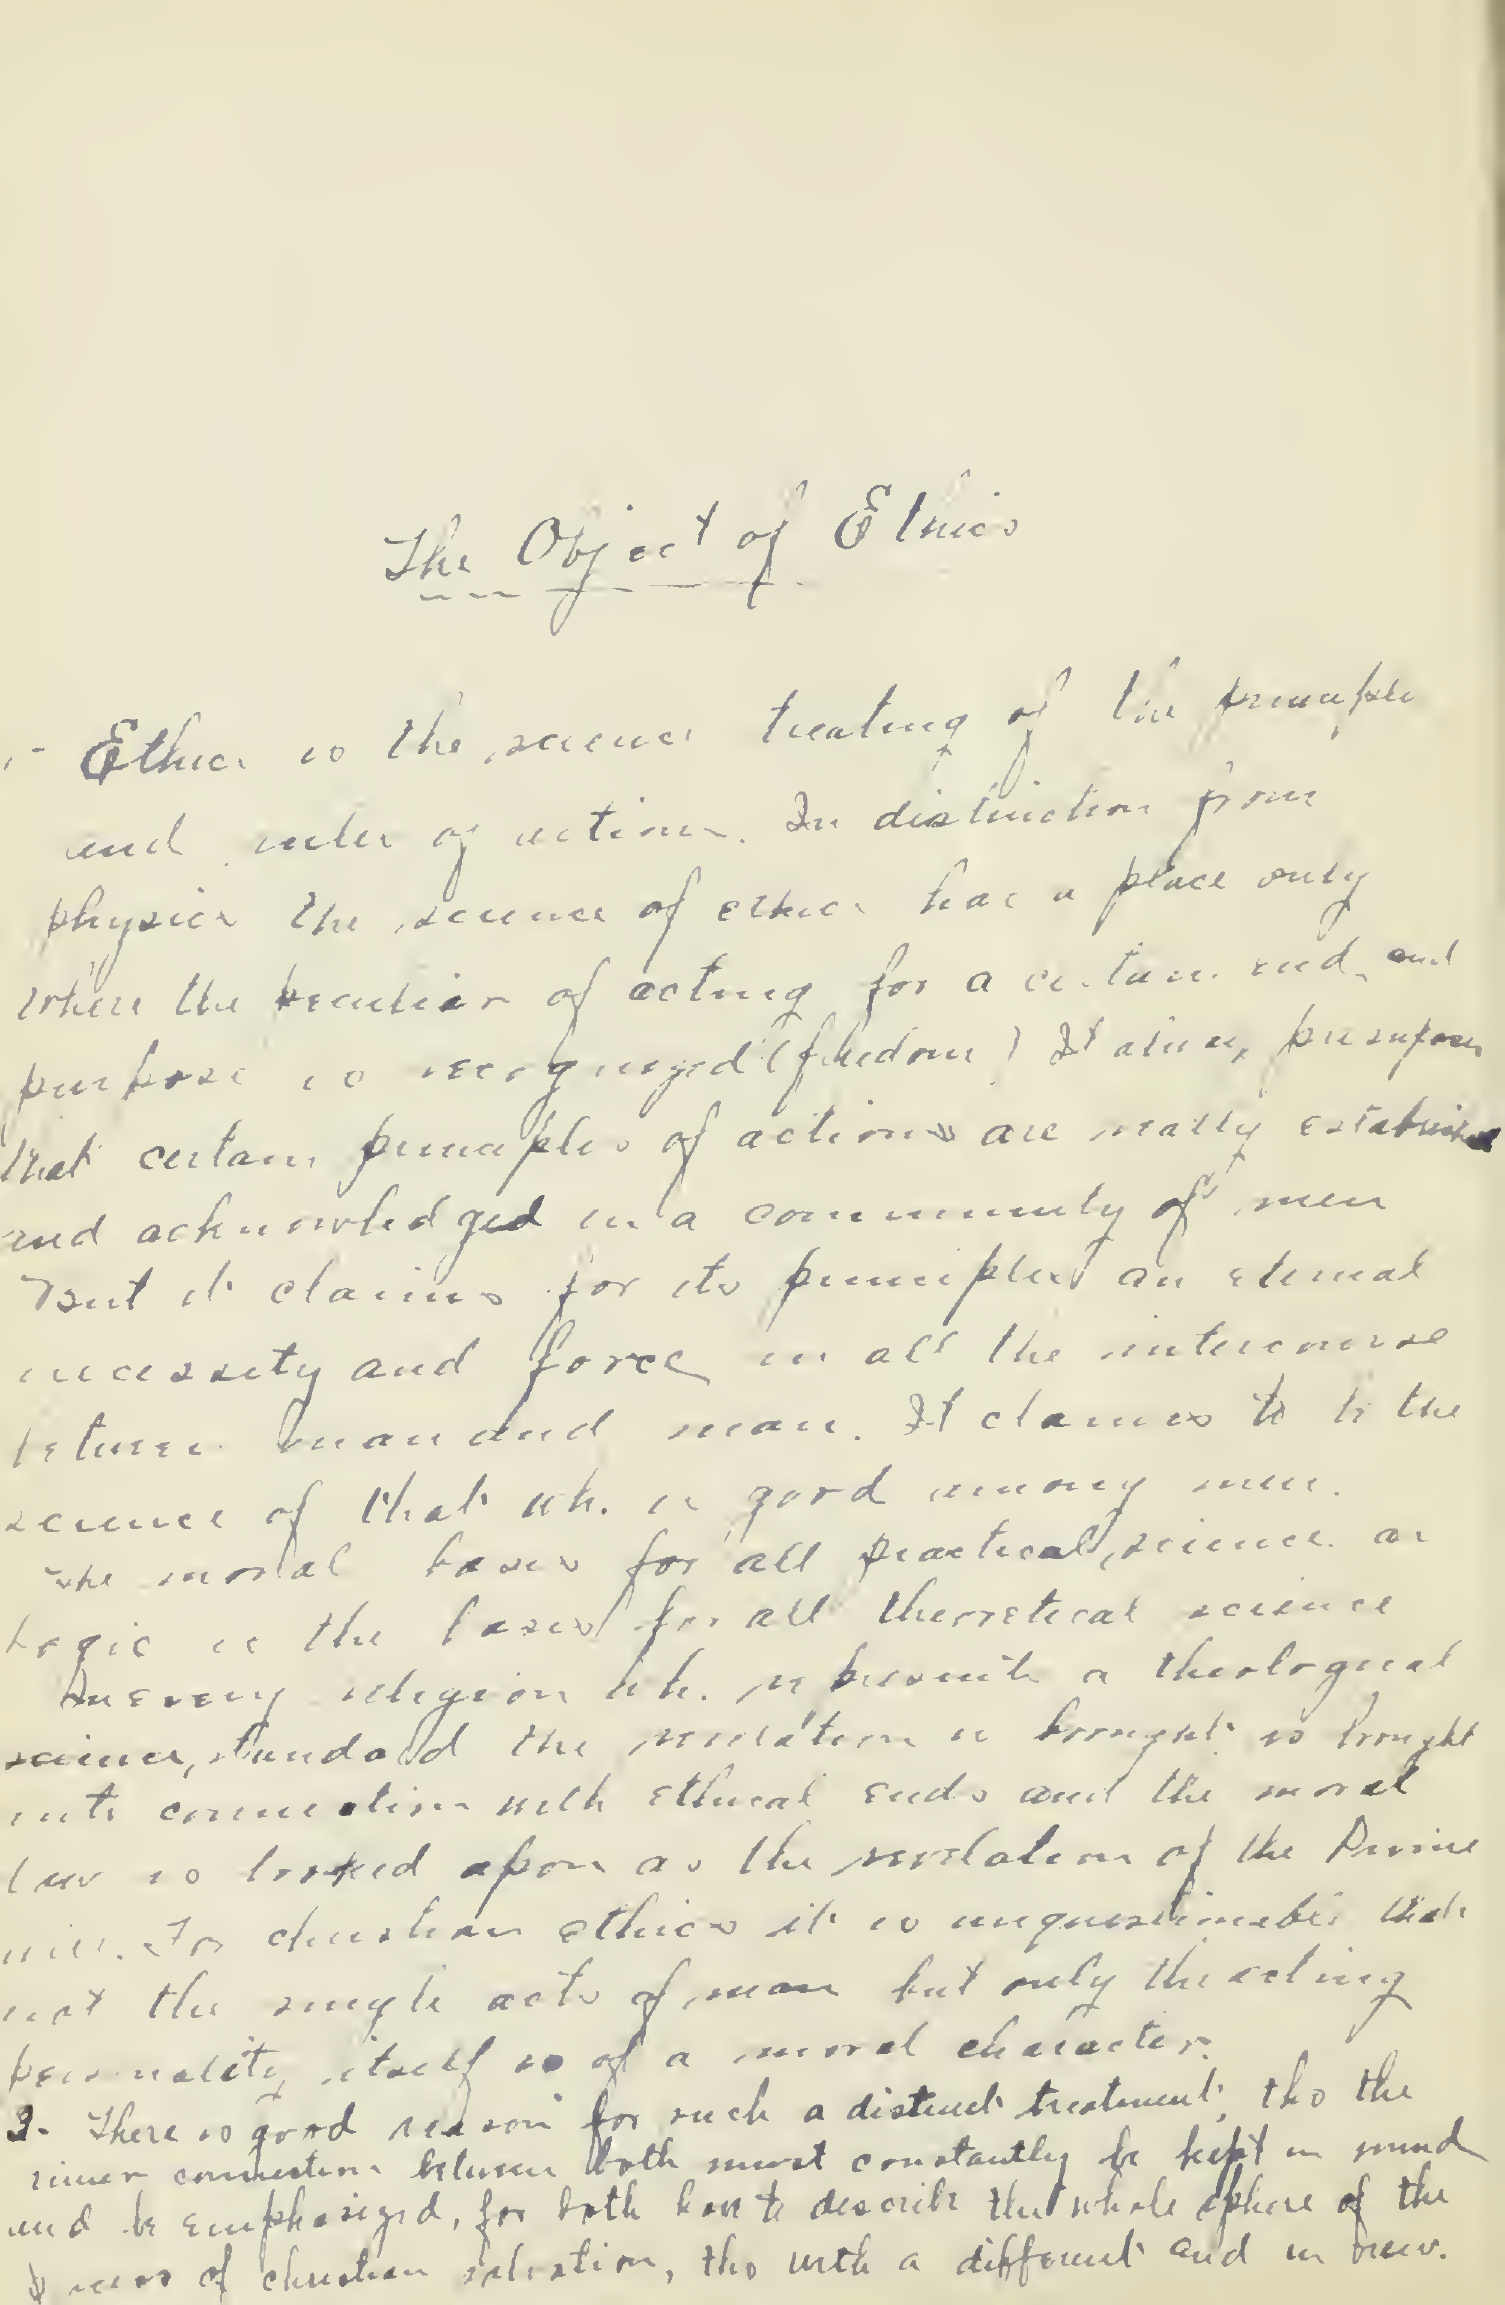 The Object of Ethics
1- Ethics is the science treating of the principles
and rules of actions. In distinction from
physics the science of ethics has a place only
where the peculiar of acting for a certain end and
purpose is recognized (freedom) It also presupposes
that certain principles of actions are really established
and acknowledged in a community of men
But it claims for its principles an eternal
necessity and force in all the intercourse
between man and man. It claims to be the
science of that wh. is good among men.
The moral bases for all practical science as
Logic is the bases for all theoretical science
In every religion wh. permits a theological
science, standard the revelation is brought is brought
into connection with ethical ends and the moral
law is looked upon as the revelation of the Divine
will. For christian ethics it is unquestionable that
not the single acts of man but only the acting
personality itself is of a moral character.
3- There is good reason for such a distinct treatment, tho the
inner connection between both must constantly be kept in mind
and be emphasized, for both have to describe the whole sphere of the
of christian salvation, tho with a different end in view.